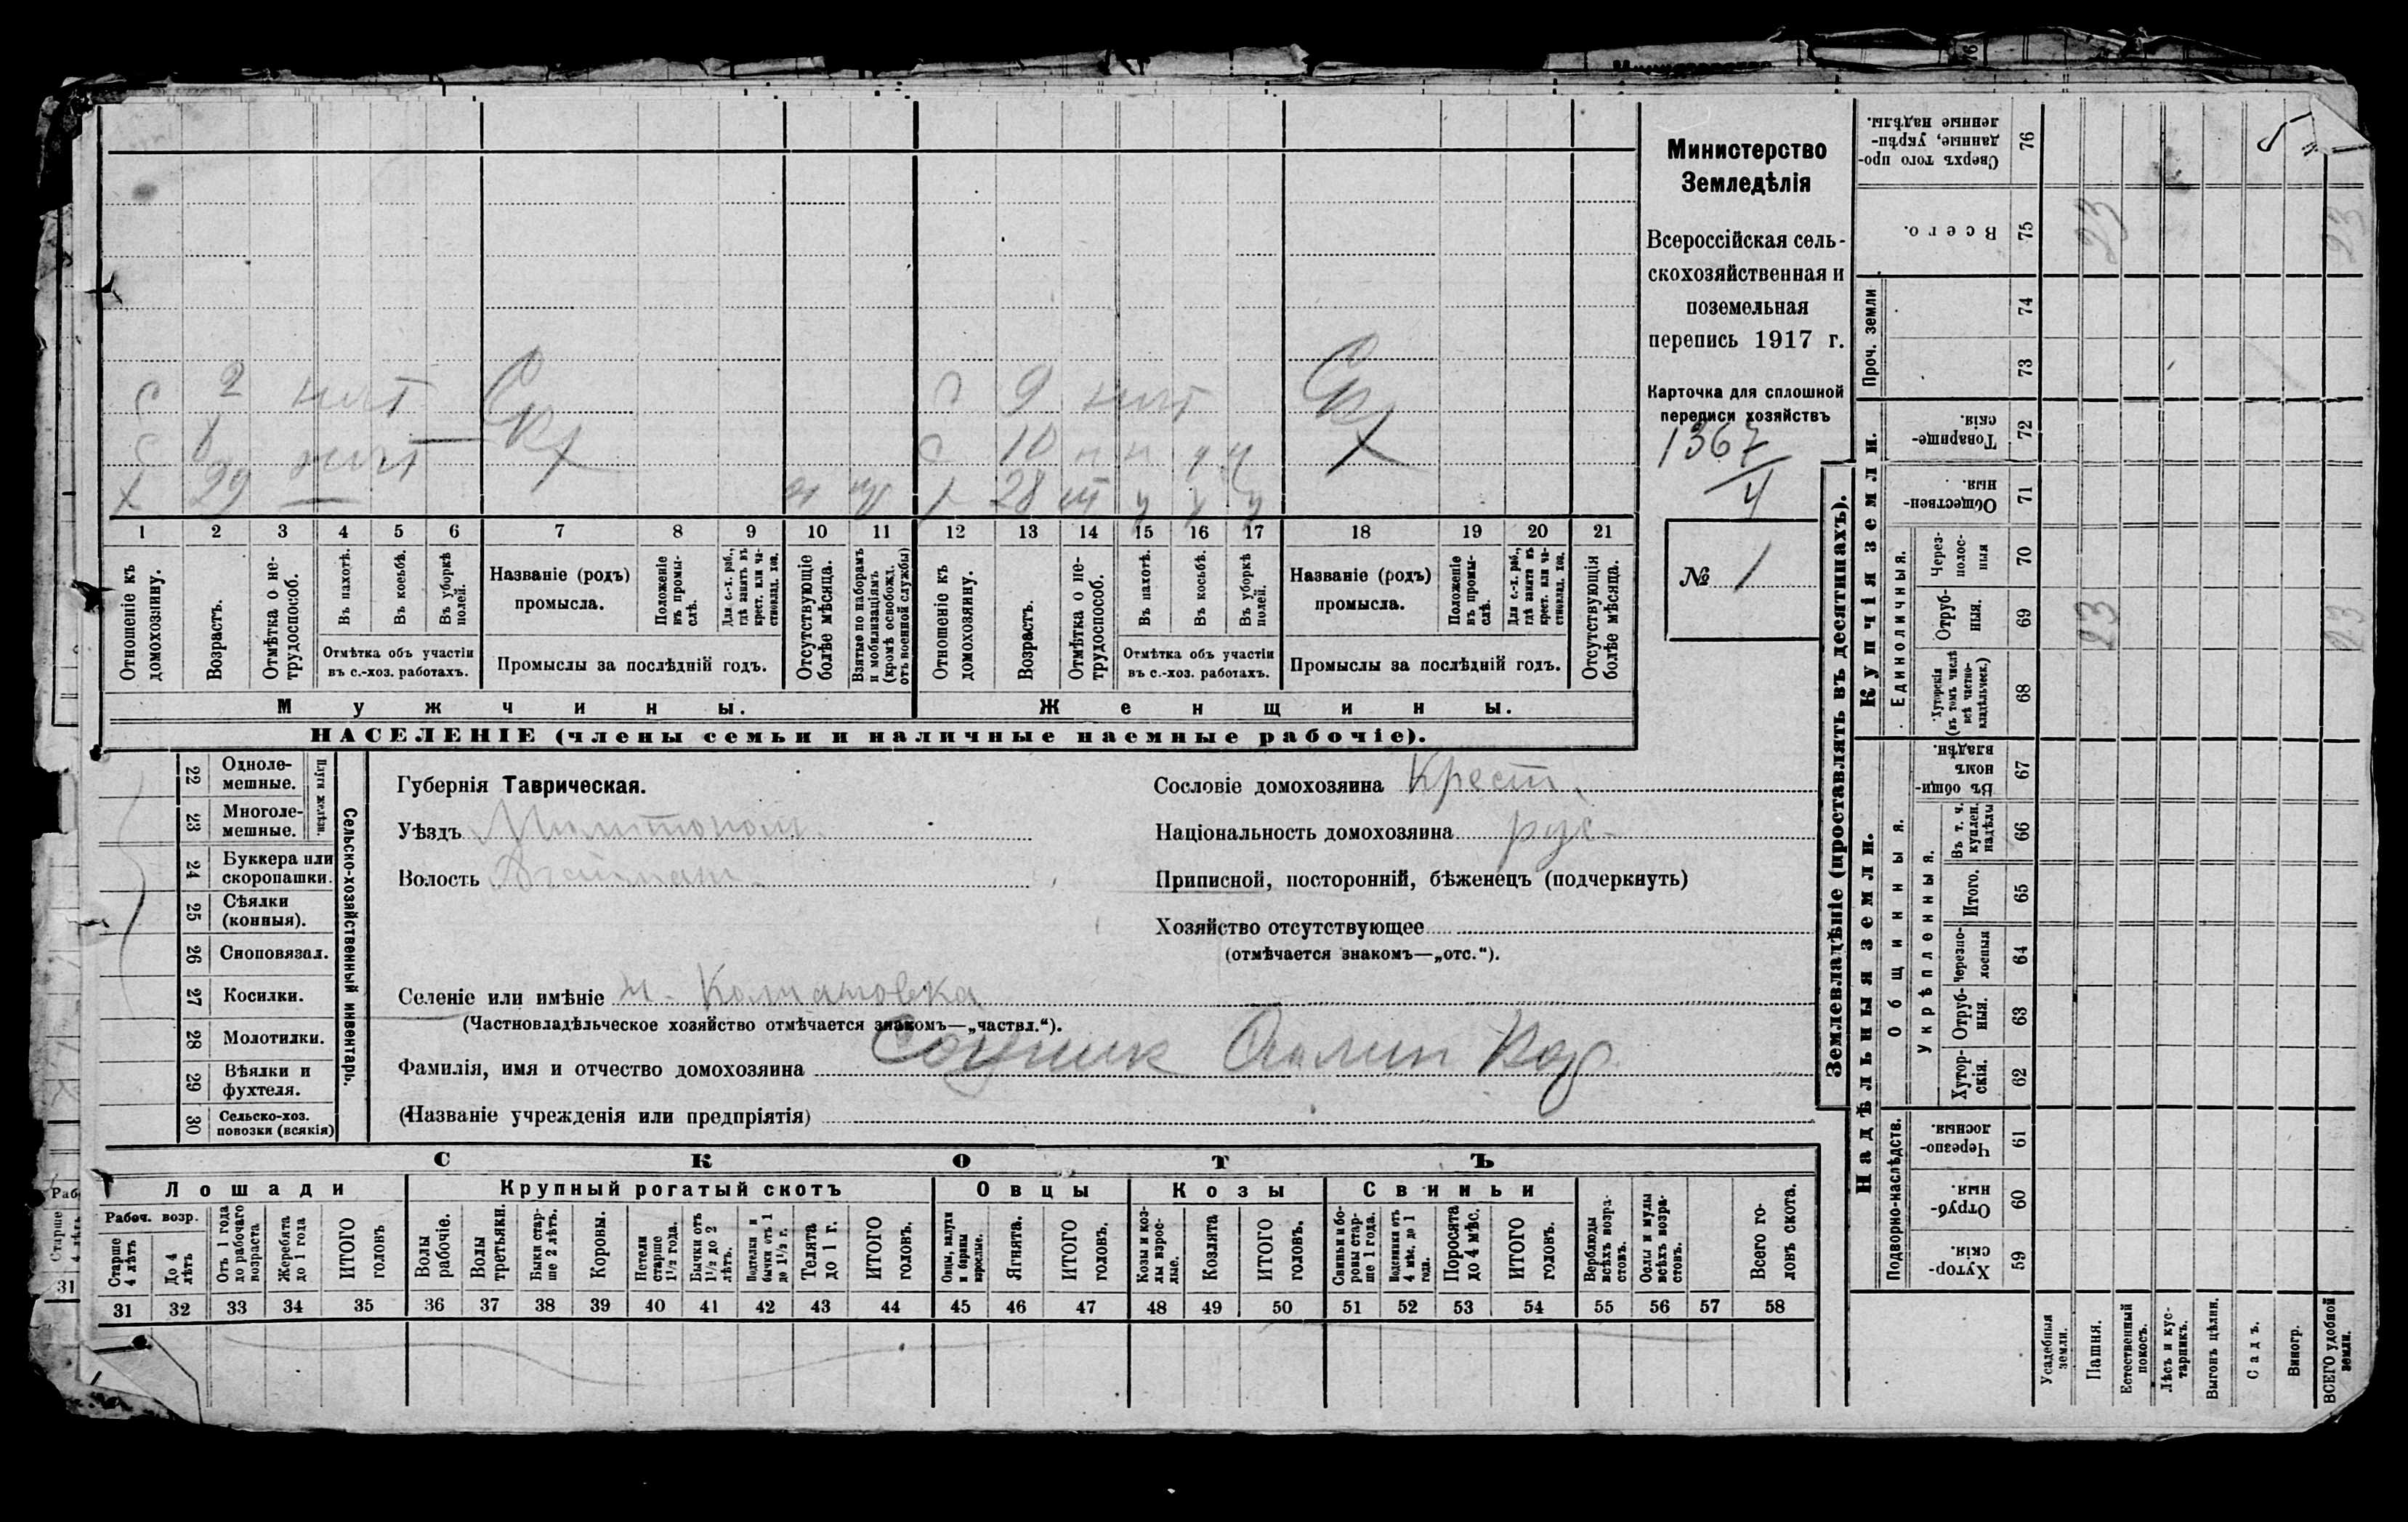 Министерство
Земледѣлія
Всероссійская сель-
скохозяйственная и
поземельная
перепись 1917 г.
Карточка для сплошной
переписи хозяйствъ
1367
4
№ 1
С 2 нит
С 6 нит
Х 29 нит
Сх
С 9 нит
С 10
28
Сх
1 2 3 4 5 6 7 8 9 10 11 12 13 14 15 16 17 18 19 20 21
Отношеніе къ домохозяину.
Возрастъ.
Отмѣтка о не-трудоспособ.
Въ пахотѣ.
Въ косьбѣ.
Въ уборкѣ полей.
Отмѣтка объ участіи
въ с.-хоз. работахъ.
Названіе (родъ)
промысла.
Положеніе въ промы-слѣ.
Для с.-х. раб., гдѣ занятъ въ крест. или ча-стновлад. хоз.
Промыслы за послѣдній годъ.
Отсутствующіе болѣе мѣсяца.
Взятые по наборамъ и мобилизаціямъ (кромѣ освобожд. отъ военной службы)
Отношеніе къ домохозяину.
Возрастъ.
Отмѣтка о не-трудоспособ.
Въ пахотѣ.
Въ косьбѣ.
Въ уборкѣ полей.
Отмѣтка объ участіи
въ с.-хоз. работахъ.
Названіе (родъ)
промысла.
Положеніе въ промы-слѣ.
Для с.-х. раб., гдѣ занята въ крест. или ча-стновлад. хоз.
Промыслы за послѣдній годъ.
Отсутствующія болѣе мѣсяца.
Мужчины.
Женщины.
НАСЕЛЕНІЕ (члены семьи и наличные наемные рабочіе).
22 Однолемешные.
23 Многолемешные.
Плуги желѣзн.
24 Буккера или скоропашки.
25 Сѣялки (конныя).
26 Сноповязал.
27 Косилки.
28 Молотилки.
29 Вѣялки и фухтеля.
30 Сельско-хоз. повозки (всякія)
Сельско-хозяйственный инвентарь.
Губернія Таврическая.
Уѣздъ Мелитопол.
Волость
Селеніе или имѣніе
(Частновладѣльческое хозяйство отмѣчается знакомъ—„частвл.“).
Фамилія, имя и отчество домохозяина
(Названіе учрежденія или предпріятія)
Сословіе домохозяина Крест.
Національность домохозяина рус.
Приписной, посторонній, бѣженецъ (подчеркнуть)
Хозяйство отсутствующее
(отмѣчается знакомъ—„отс.“).
СКОТЪ
Лошади
Крупный рогатый скотъ
Овцы
Козы
Свиньи
Рабоч. возр.
Старше 4 лѣтъ
До 4 лѣтъ
Отъ 1 года до рабочаго возраста
Жеребята до 1 года
ИТОГО головъ
Волы рабочіе.
Волы третьяки.
Быки стар-ше 2 лѣтъ.
Коровы.
Нетели старше 1½ года.
Бычки отъ 1½ до 2 лѣтъ.
Подтелки и бычки отъ 1 до 1½ г.
Телята до 1 г.
ИТОГО головъ.
Овцы, валухи и бараны взрослые.
Ягнята.
ИТОГО головъ.
Козы и коз-лы взрос-лые.
Козлята
ИТОГО головъ.
Свиньи и бо-ровы стар-ше 1 года.
Подсвинки отъ 4 мѣс. до 1 года.
Поросята до 4 мѣс.
ИТОГО головъ.
Верблюды всѣхъ возра-стовъ.
Ослы и мулы всѣхъ возра-стовъ.
Всего го-ловъ скота.
31 32 33 34 35 36 37 38 39 40 41 42 43 44 45 46 47 48 49 50 51 52 53 54 55 56 57 58
Землевладѣніе (проставлять въ десятинахъ).
Надѣльныя земли.
Купчія земли.
Проч. земли
Подворно-наслѣдств.
Общинныя.
Укрѣпленныя.
Единоличныя.
Сверхъ того про-данные, укрѣп-ленные надѣлы. 76
Всего. 75 23 23
74
73
Товарище-скія 72
Обществен-ныя. 71
Через-полос-ныя 70
Отруб-ныя. 69 23 23
Хуторскія (въ томъ числѣ всѣ частно-владѣльческ.) 68
Въ общин-номъ владѣн. 67
Въ т. ч. куплен. надѣлы 66
Итого. 65
Черезпо-лосныя 64
Отруб-ныя. 63
Хутор-скія. 62
Черезпо-лосныя. 61
Отруб-ныя. 60
Хутор-скія. 59
Усадебныя земли.
Пашня.
Естественный покосъ.
Лѣсъ и кус-тарникъ.
Выгонъ цѣлин.
Садъ.
Виногр.
ВСЕГО удобной земли.
Старше
31